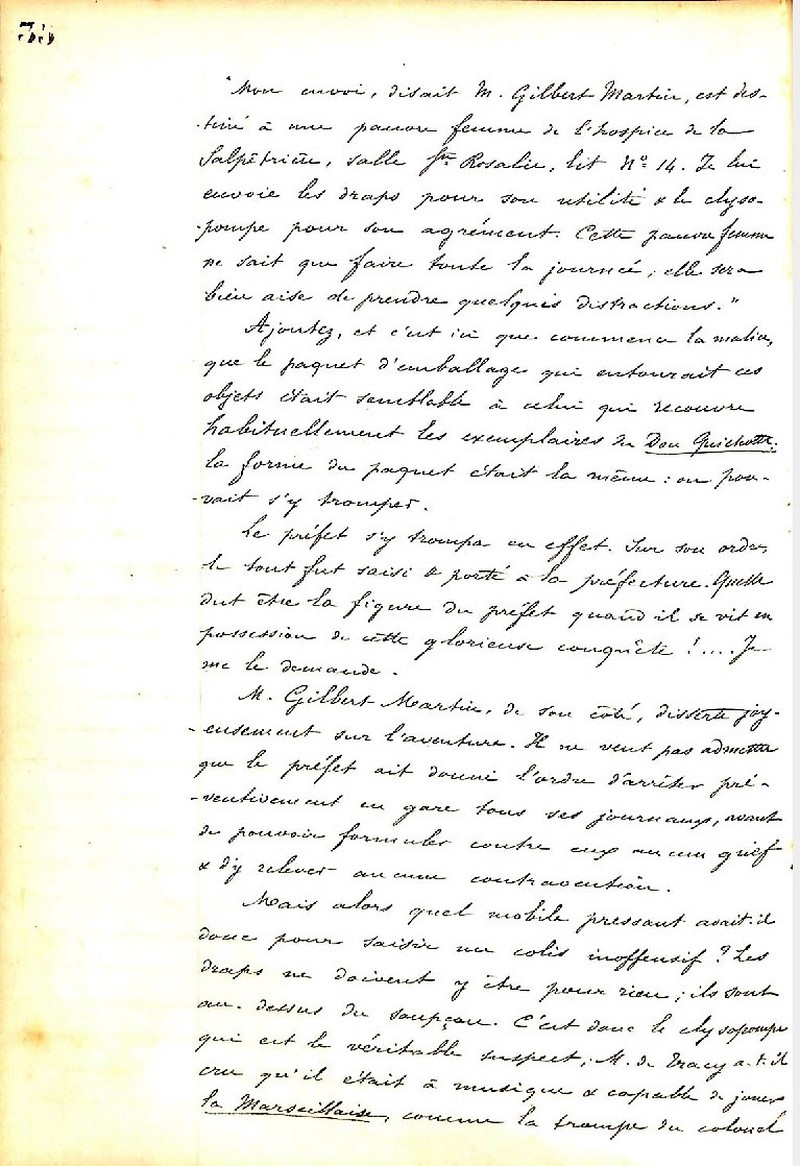 "Mon envoi, disait M. Gilbert Martin, est des-
-tiné à une pauvre femme de l'hospice de la
Salpêtrière, salle Ste Rosalie, lit No 14. Je lui
envoie les draps pour son utilité & le clyso-
-pompe pour son agrément. Cette pauvre femme
ne sait que faire toute la journée ; elle sera
bien aise de prendre quelques distractions."
Ajoutez, et c'est ici que commence la malice,
que le paquet d'emballage qui entourait ces
objets était semblable à celui qui recouvre
habituellement les exemplaires du Don Quichotte :
la forme du paquet était la même : on pou-
-vait s'y tromper.
Le préfet s'y trompa en effet. Sur son ordre,
le tout fut saisi & porté à la préfecture. Quelle
dut être la figure du préfet quand il se vit en
possession de cette glorieuse conquête !.... Je
me le demande.
M. Gilbert-Martin, de son côté, disserte joy-
-eusement sur l'aventure. Il ne veut pas admettre
que le préfet ait donné l'ordre d'arrêter pré-
-ventivement en gare tous ses journaux, avant
de pouvoir formuler contre eux aucun grief
& d'y relever aucune contravention.
Mais alors quel mobile pressant avait-il
donc pour saisir un colis inoffensif ? Les
draps ne doivent y être pour rien ; ils sont
au-dessus du soupçon. C'est donc le clysopompe
qui est le véritable suspect ; M. de Tracy a-t-il
cru qu'il était à musique & capable de jouer
la Marseillaise, comme la trompe du colonel